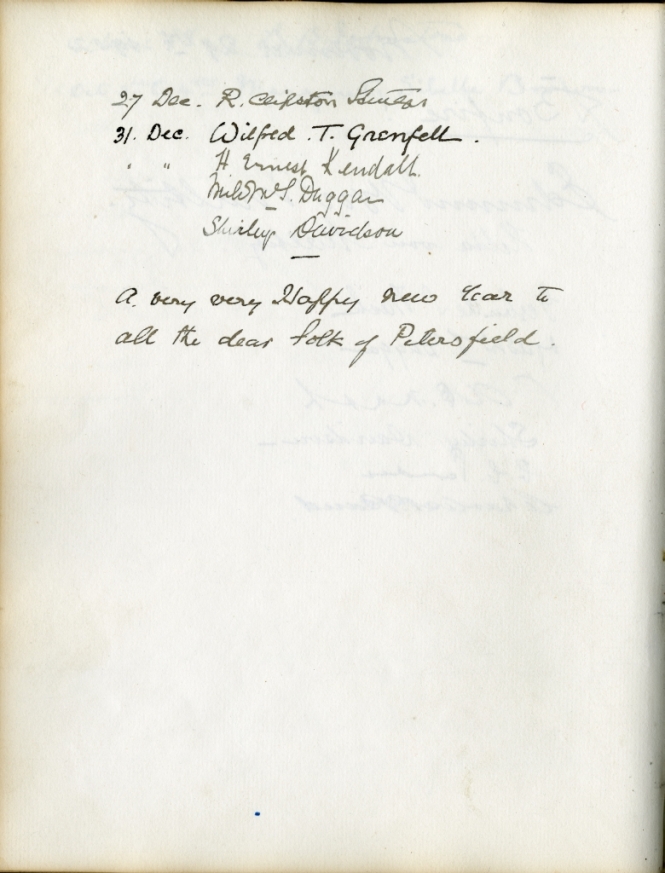 27 Dec. R. Clipston Sturgis
31. Dec. Wilfred . T. Grenfell .
" " H. Ernest Kendall.
Duggan
Shirley Davidson
A. very very Happy new Year to
all the dear folk of Petersfield .